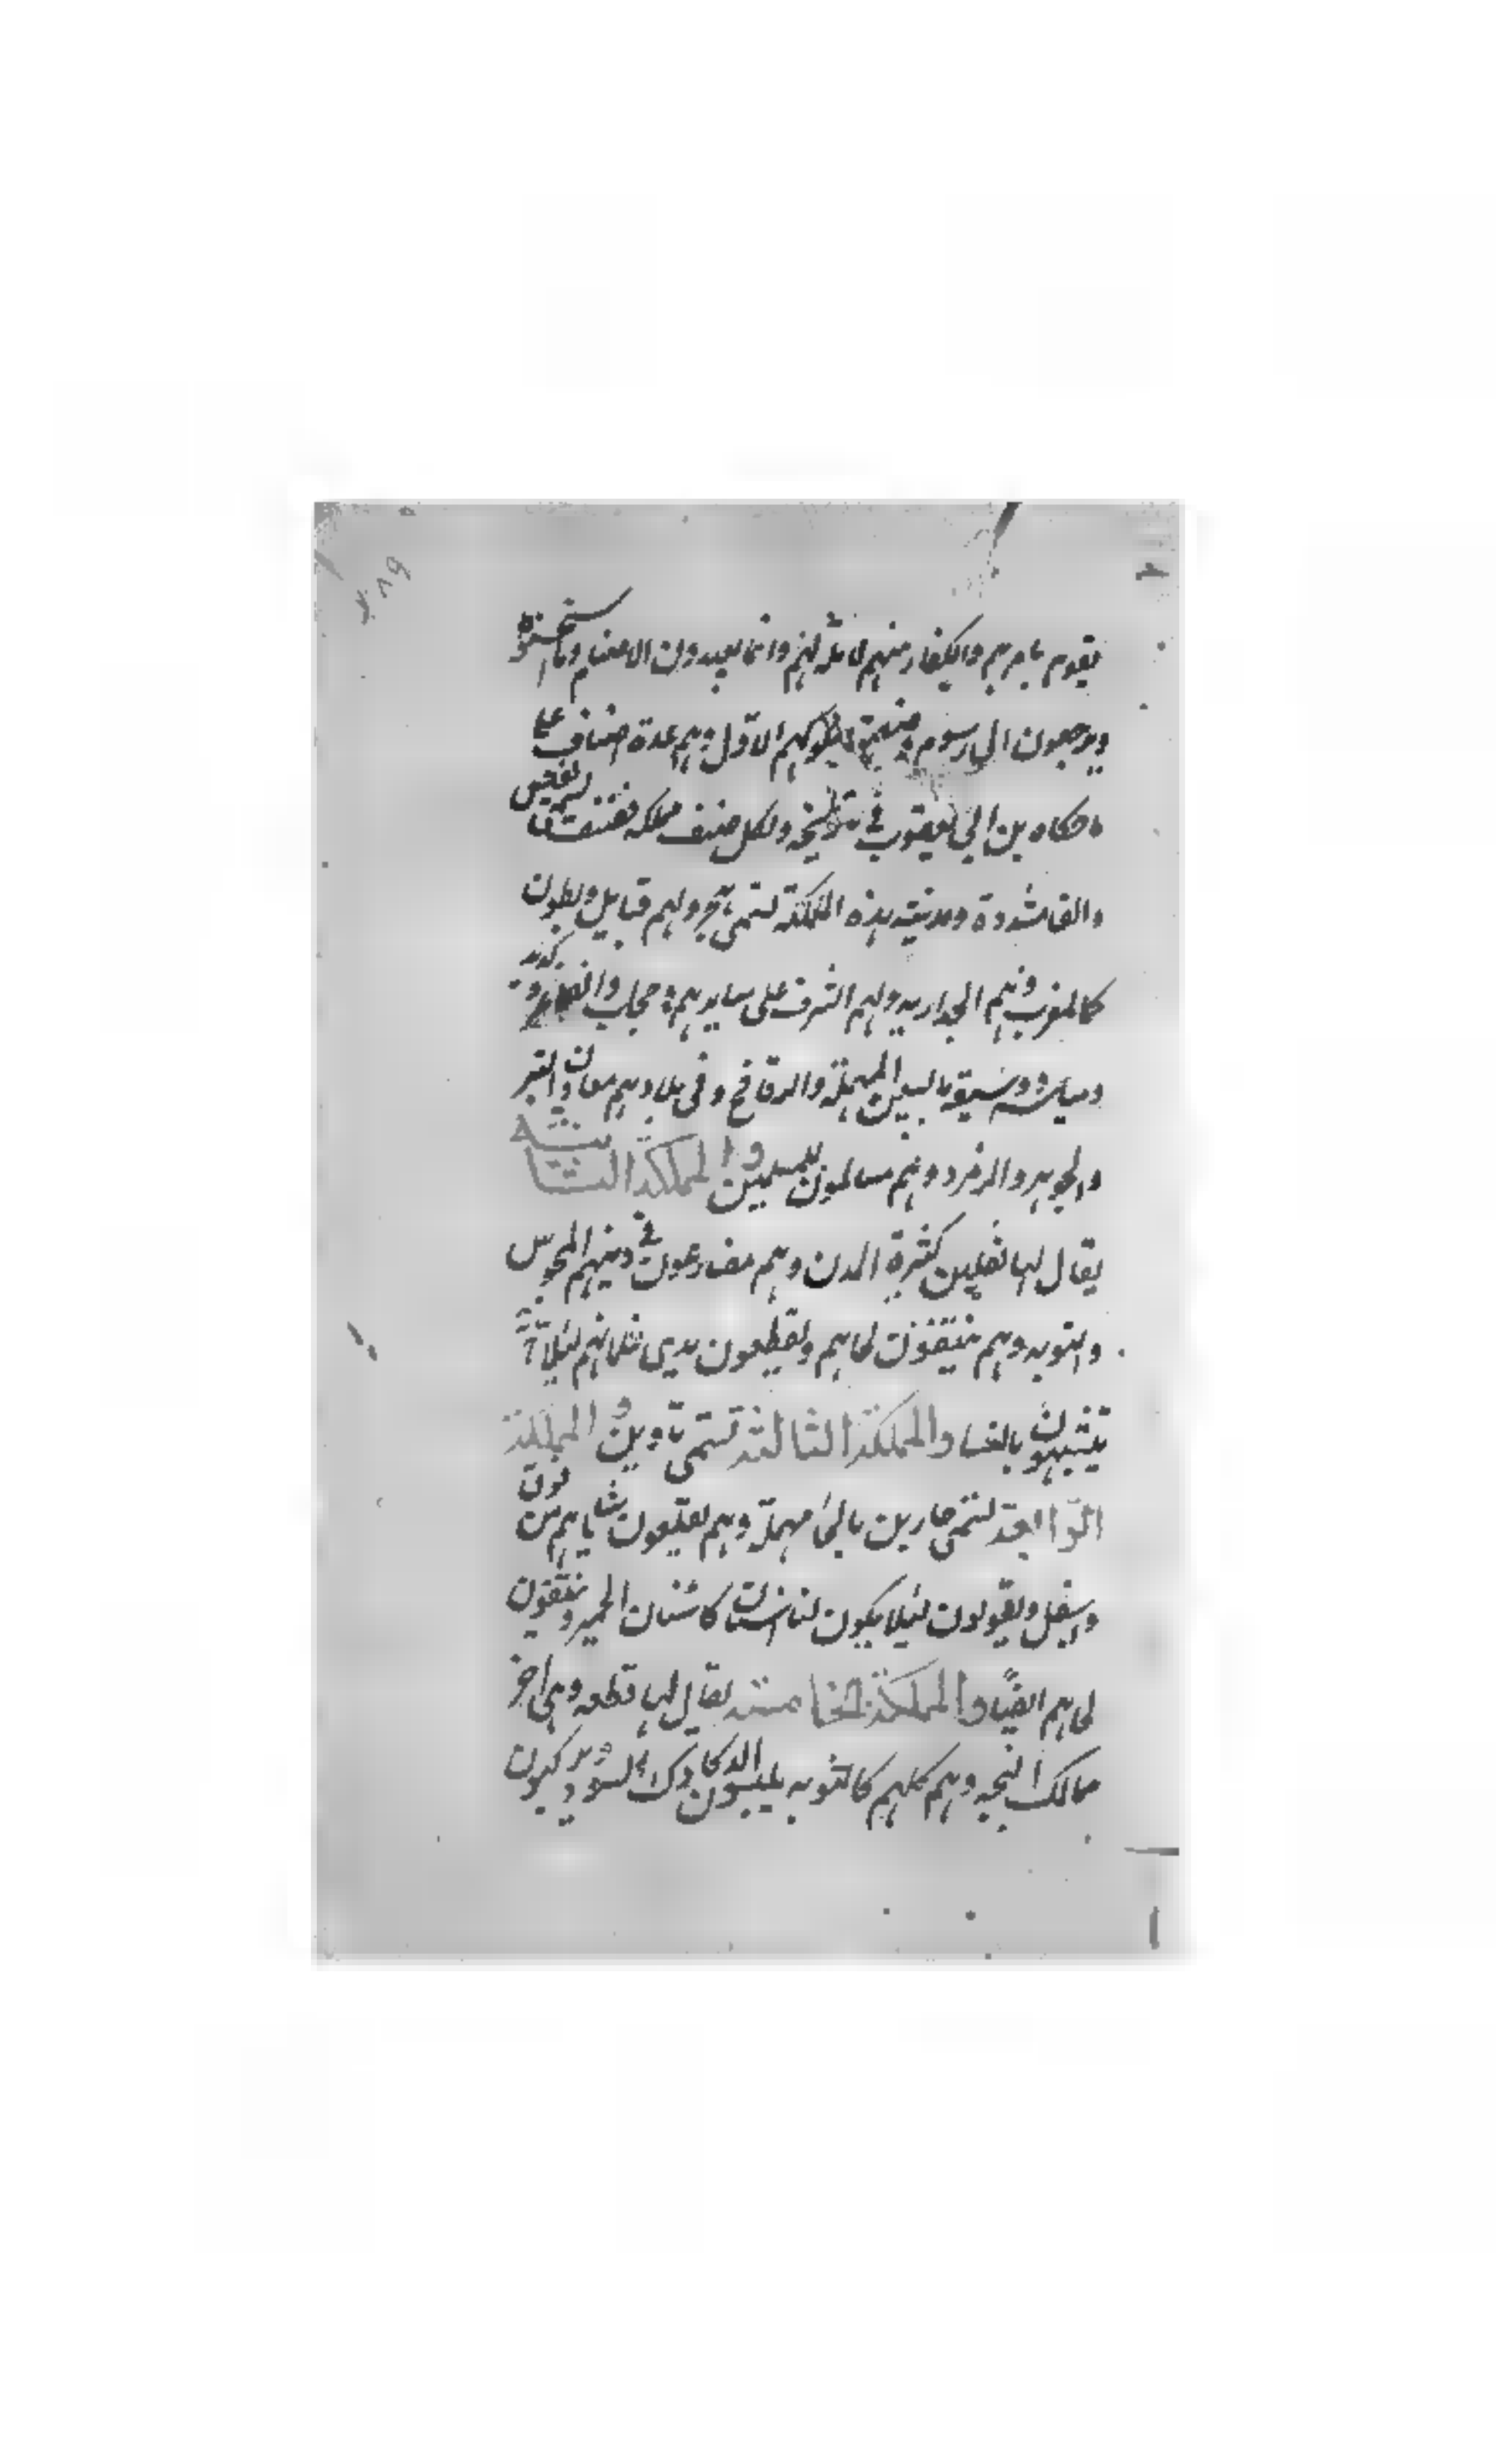 يقوم بامرهم والكفار منهم لا مثل لهم وانما يعبدون الاصنام وما استحسنوه
ويرجعون الى رسوم ملوكهم الاول وهم عدة اصناف على
ما حكاه بن ابي يعقوب في تاريخه ولكل صنف مملكة فصنف
والقاشدودة ومدينة هذه المملكة تسمى هجر ولهم قبايل وبطون
كالمغرب ومنهم الجداريه ولهم الشرف على سايرهم وحجاب
بالسين المهملة والرقافح وفى بلادهم معادن التبر
والجوهر والزمرد وهم مسالمون للمسلمين والمملكة الثانية
يقال لها نقلين كثيرة المدن وهم مضارعون في دينهم المجوس
والثنويه وهم ينتفون لحاهم ويقطعون ثدى غلمانهم لئلا
يتشبهون بالنسا والمملكة الثالثة تسمى تازين والمملكة
الرابعة تسمى جارين بالحاء مهملة وهم يقلعون ثناياهم من فوق
واسفل ويقولون لئيلا يكون لنا اسنان كاسنان الحمير وينتفون
لحاهم ايضًا والمملكة الخامسة يقال لها قطعه وهى اخر
ممالك البجه وهم كلهم كالنوبه يلبسون السود ويركبون